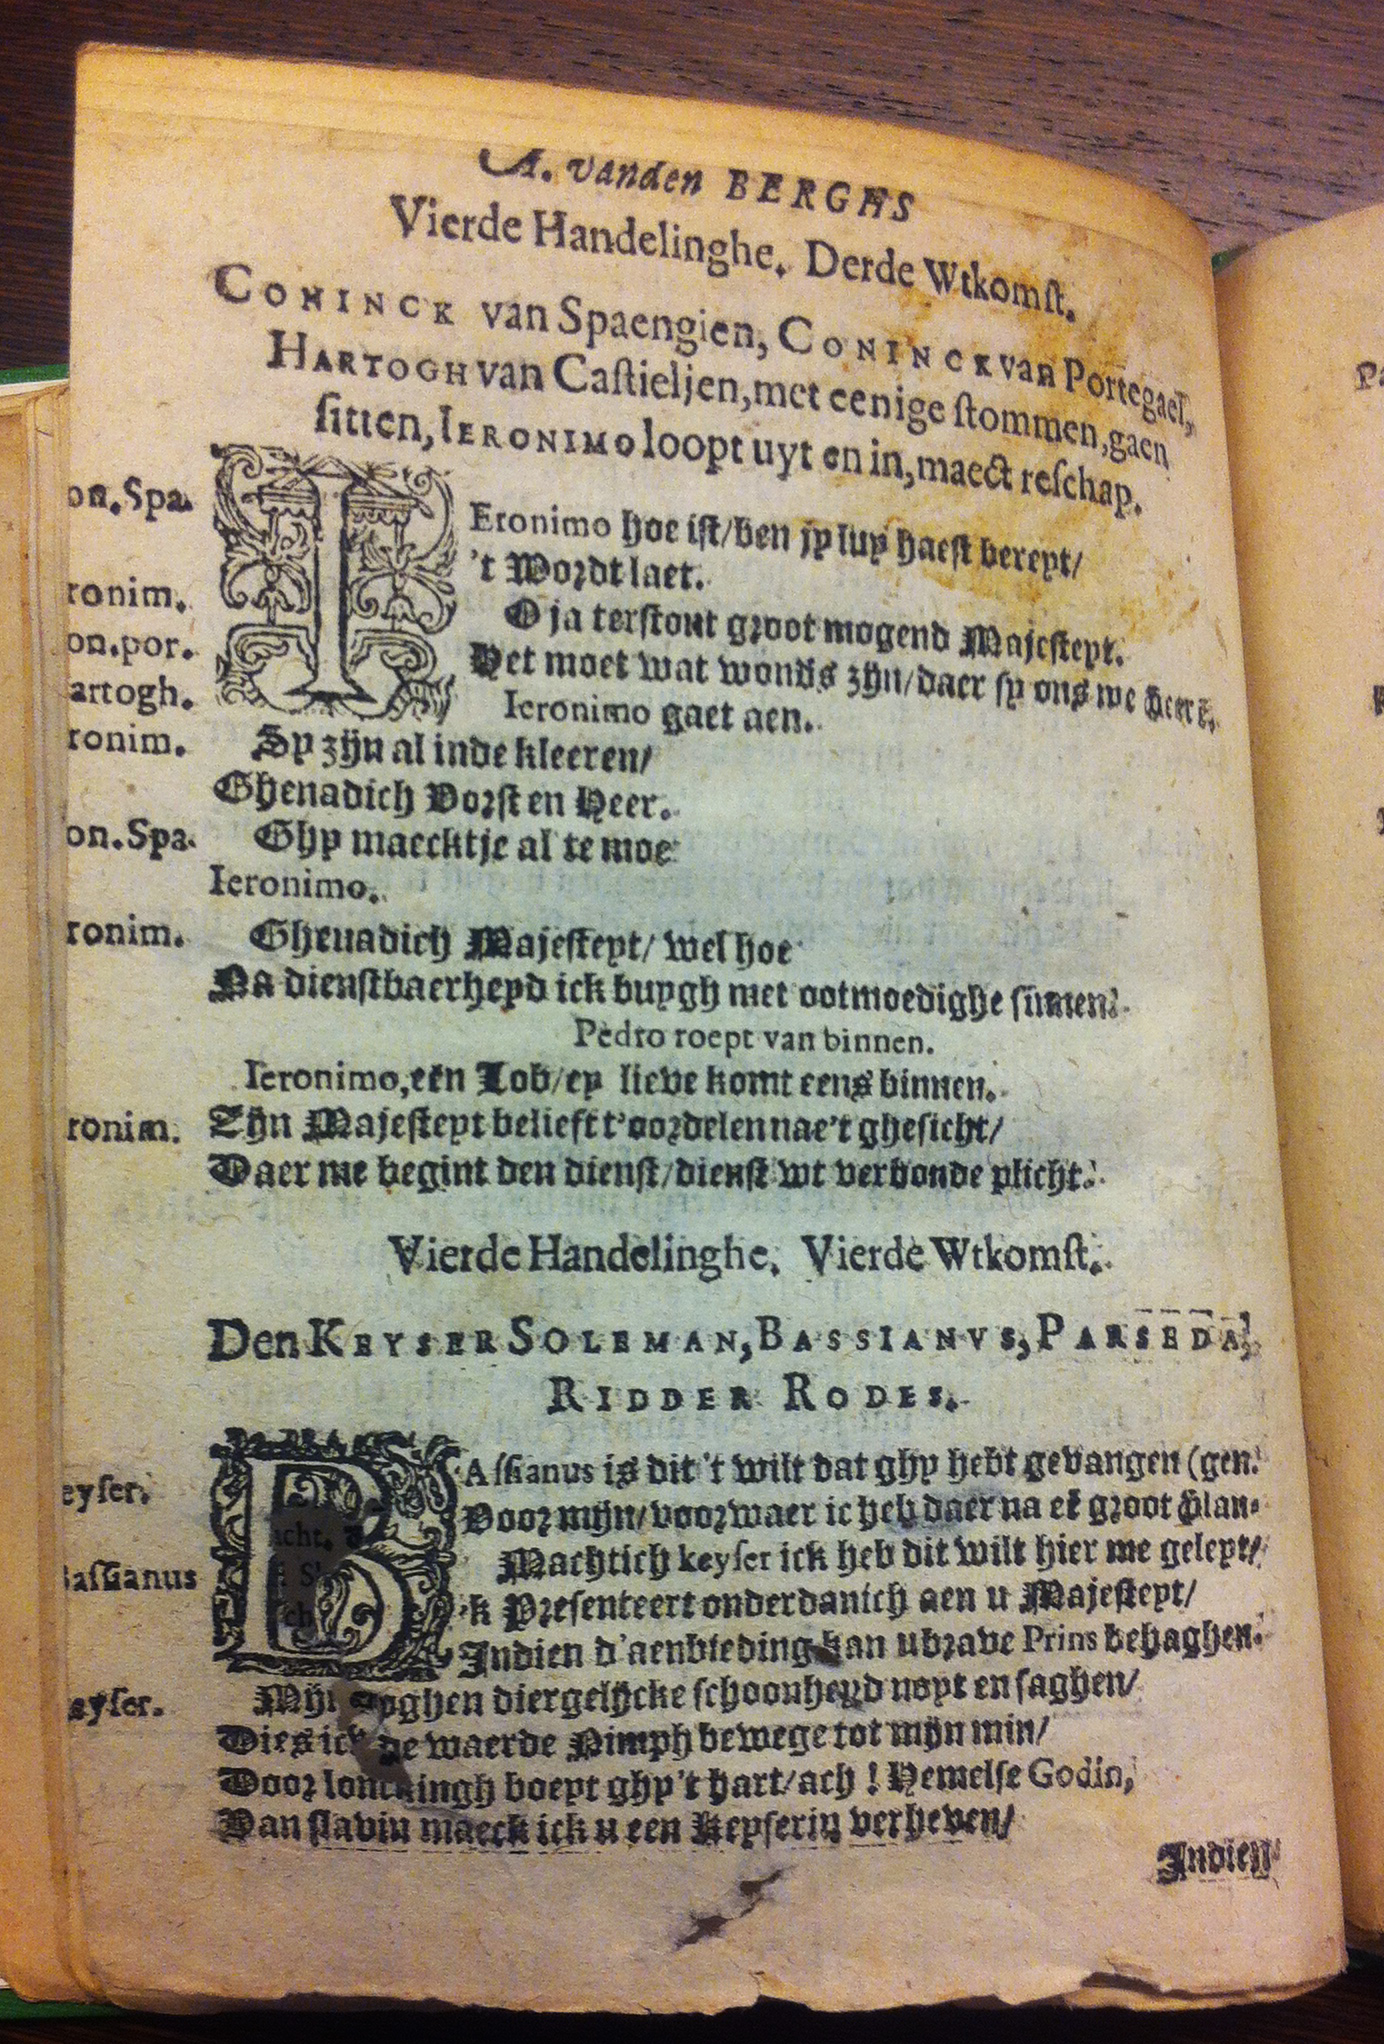 A. vanden BERGHS
Vierde Handelinghe. Derde Wtkomſt.
CONINCK van Spaengien, CONINCK van Portegael,
HARTOGH van Caſtieljen, met eenige ſtommen, gaen
ſitten, IERONIMO loopt uyt en in, maect reſchap.
on. Spa. IEronimo hoe iſt/ ben jy luy haeſt bereyt/
't Wordt laet.
ronim. O ja terſtont groot mogend Majeſteyt.
on. por. Het moet wat wonders zijn/ daer ſy ons me
artogh. Ieronimo gaet aen.
ronim. Sy zijn al inde kleeren/
Ghenadich Vorſt en Heer.
on. Spa. Ghy maecktje al te moe
Ieronimo.
ronim. Ghenadich Majeſteyt/ wel hoe
Na dienſtbaerheyd ick buygh met ootmoedighe ſinnen.
Pedro roept van binnen.
Ieronimo, een Lob/ ey lieve komt eens binnen.
ronim. Zijn Majeſteyt belieft t'oordelen nae't gheſicht/
Daer me begint den dienſt/ dienſt wt verbonde plicht.
Vierde Handelinghe. Vierde Wtkomſt.
Den KEYSER SOLEMAN, BASSIANVS, PARSEDA,
RIDDER RODES.
eyſer. BAſſianus is dit 't wilt dat ghy hebt gevangen (gen.
Voor mijn/ voorwaer ic heb daer na eē groot vlan-
Baſſianus Machtich keyſer ick heb dit wilt hier me geleyt/
'k Preſenteert onderdanich aen u Majeſteyt/
Indien d'aenbieding kan u brave Prins behaghen.
eyſer. Mijn ooghen diergelijcke ſchoonheyd noyt en ſaghen/
Dies ick de waerde Nimph bewege tot mijn min/
Door lonckingh boeyt ghy 't hart/ ach! Hemelſe Godin,
Van ſlavin maeck ick u een Keyſerin verheven/
Indien